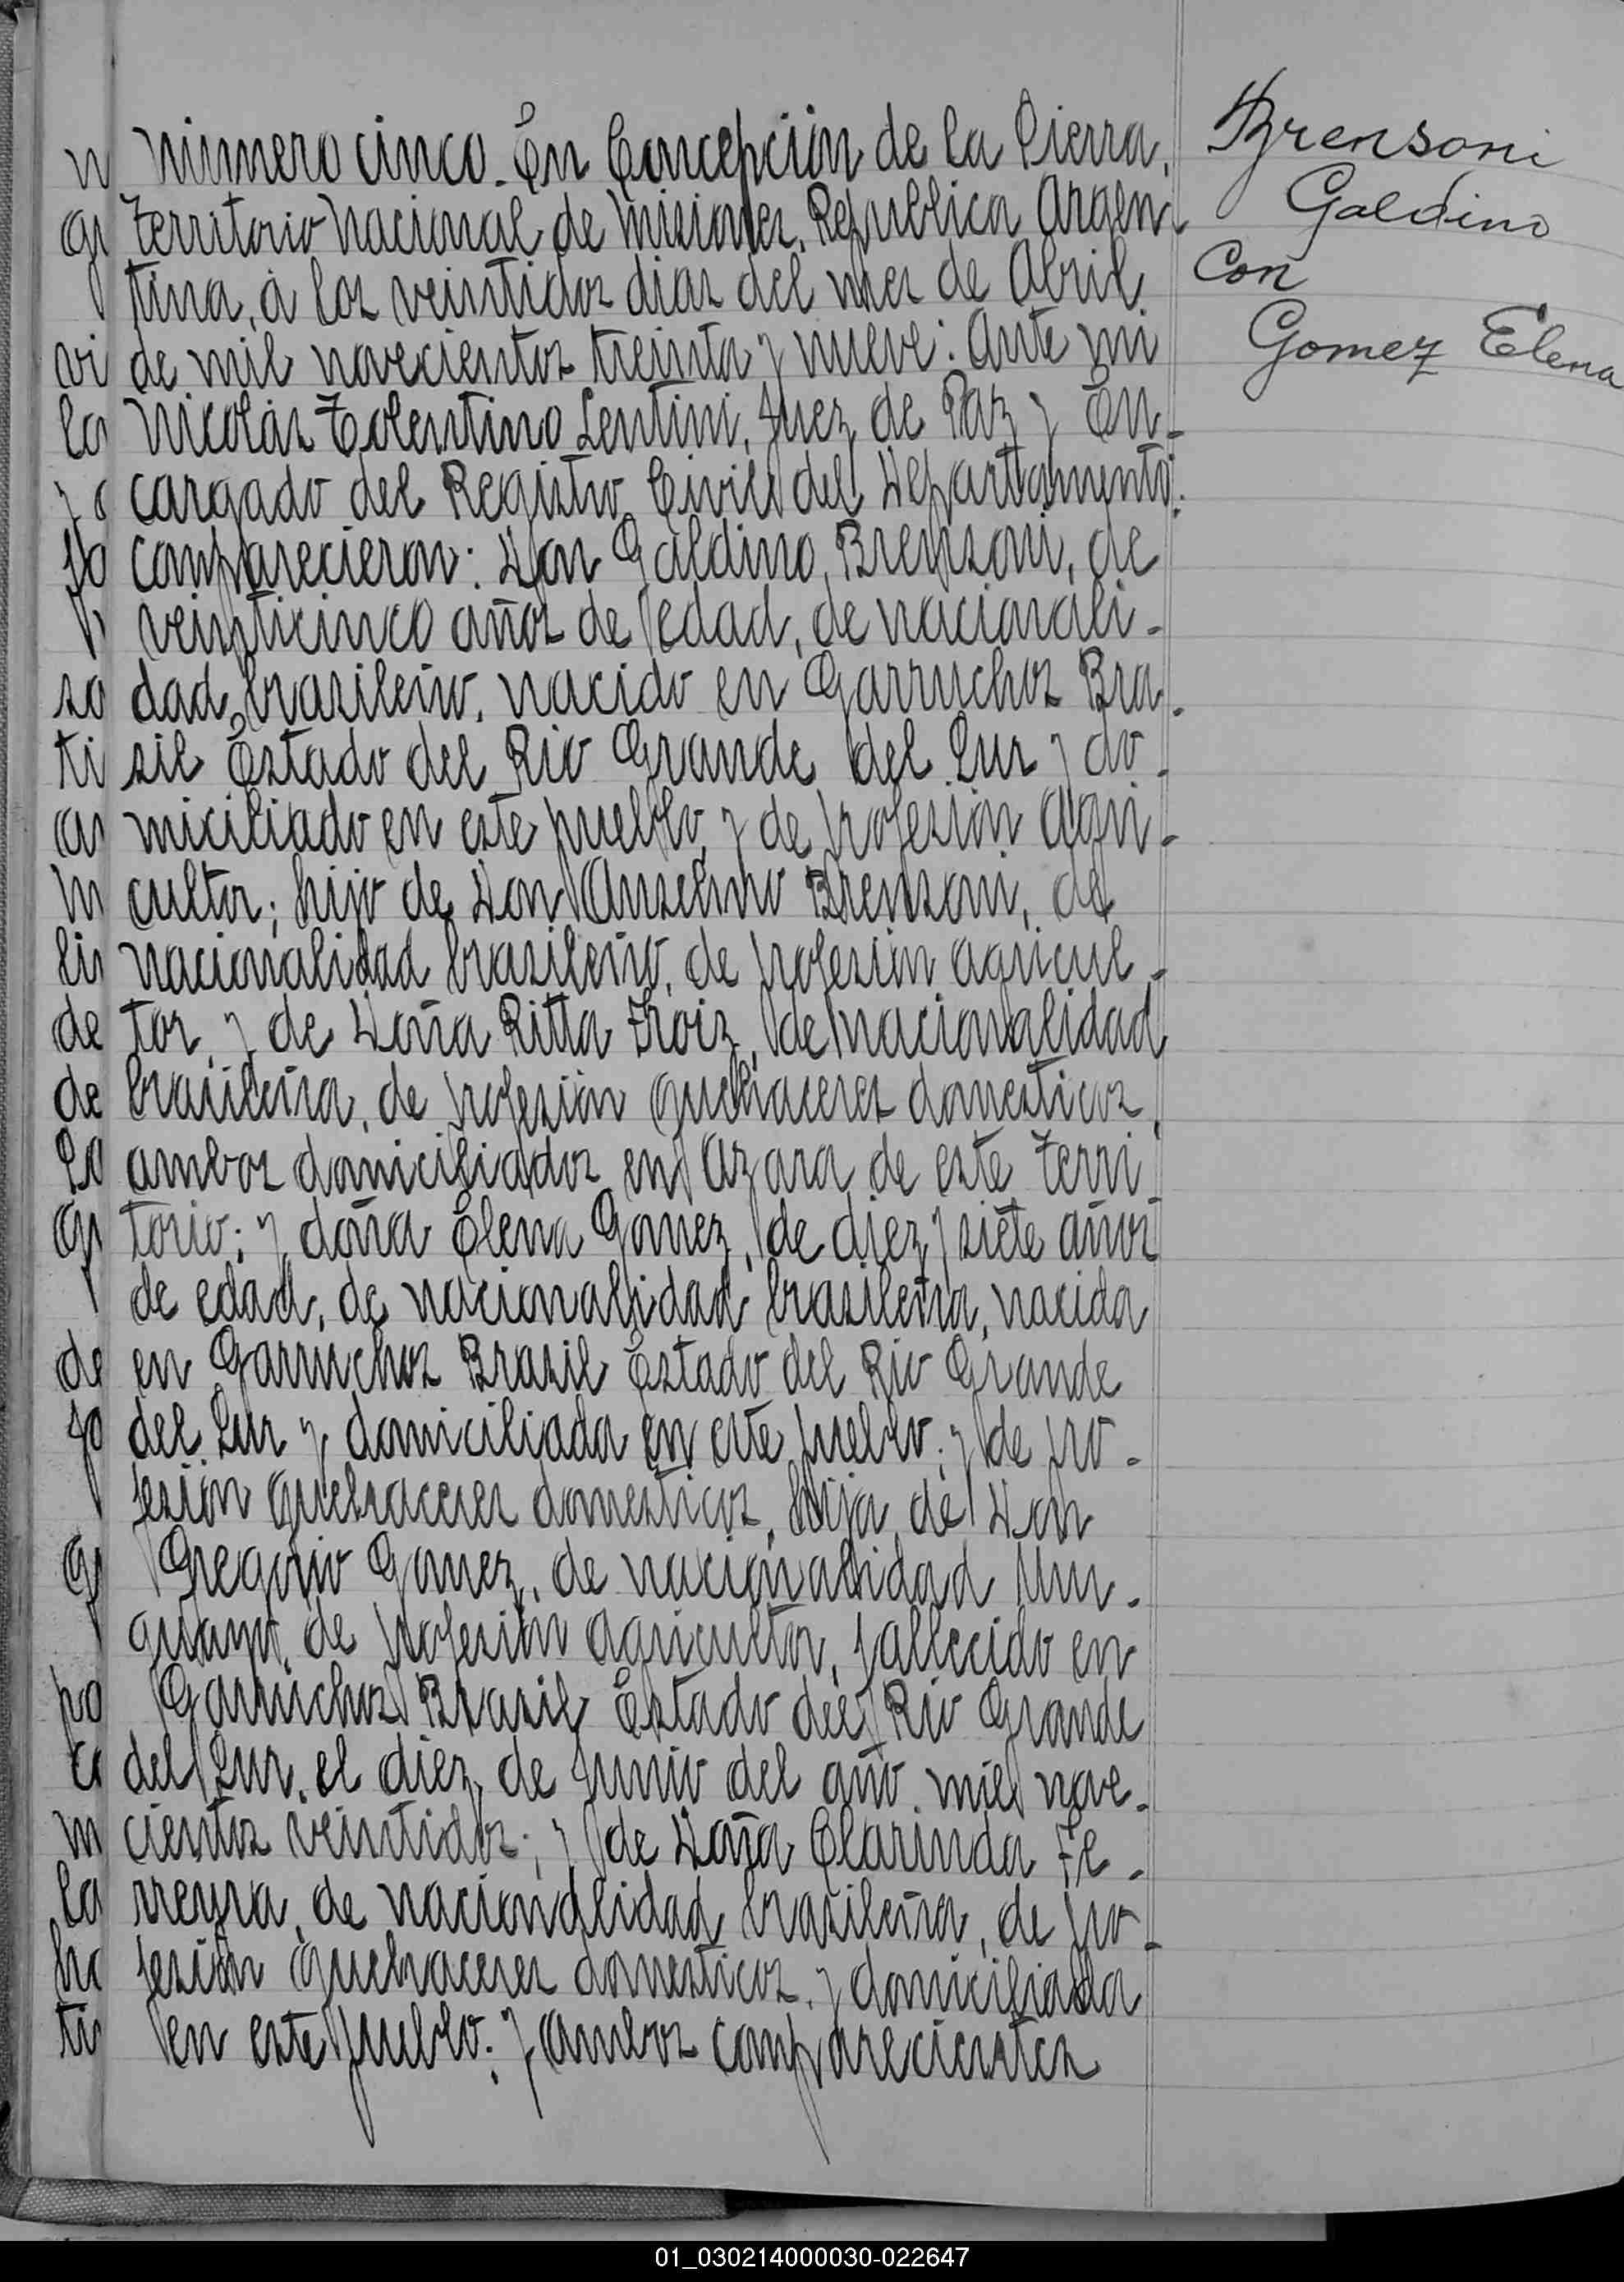 Número cinco. En Concepción de la Sierra,
Territorio Nacional de Misiones, Republica Argen-
tina, á los veintidos dias del mes de Abril
de mil novecientos treinta y nueve: Ante mi
Nicolás Tolentino Lentini, Juez de Paz y En-
cargado del Registro Civil del Departamento,
comparecieron: Don Galdino Brensoni, de
veinticinco años de edad, de nacionali-
dad brasileño, nacido en Garruchos Bra-
sil Estado del Rio Grande del Sur y do-
miciliado en este pueblo, y de profesión agri-
cultor; hijo de Don Anselmo Brensoni, de
nacionalidad brasileño, de profesión agricul-
tor, y de Doña Ritta Froiz, de nacionalidad
brasileña, de profesión quehaceres domesticos,
ambos domiciliados en Azara de este terri-
torio; y doña Elena Gomez, de diez y siete años
de edad, de nacionalidad brasileña, nacida
en Garruchos Brasil Estado del Rio Grande
del Sur y domiciliada en este pueblo; y de pro-
fesión quehaceres domesticos, hija de Don
Gregorio Gomez, de nacionalidad Uru-
guayo, de profesión agricultor, fallecido en
Garruchos Brasil Estado del Rio Grande
del Sur, el diez de Junio del año mil nove-
cientos veintidos; y de Doña Clarinda Fe-
rreyra, de nacionalidad brasileña, de pro-
fesión quehaceres domesticos, y domiciliada
en este pueblo; y ambos comparecientes
Brensoni
Galdino
Con
Gomez Elena
01_030214000030-022647